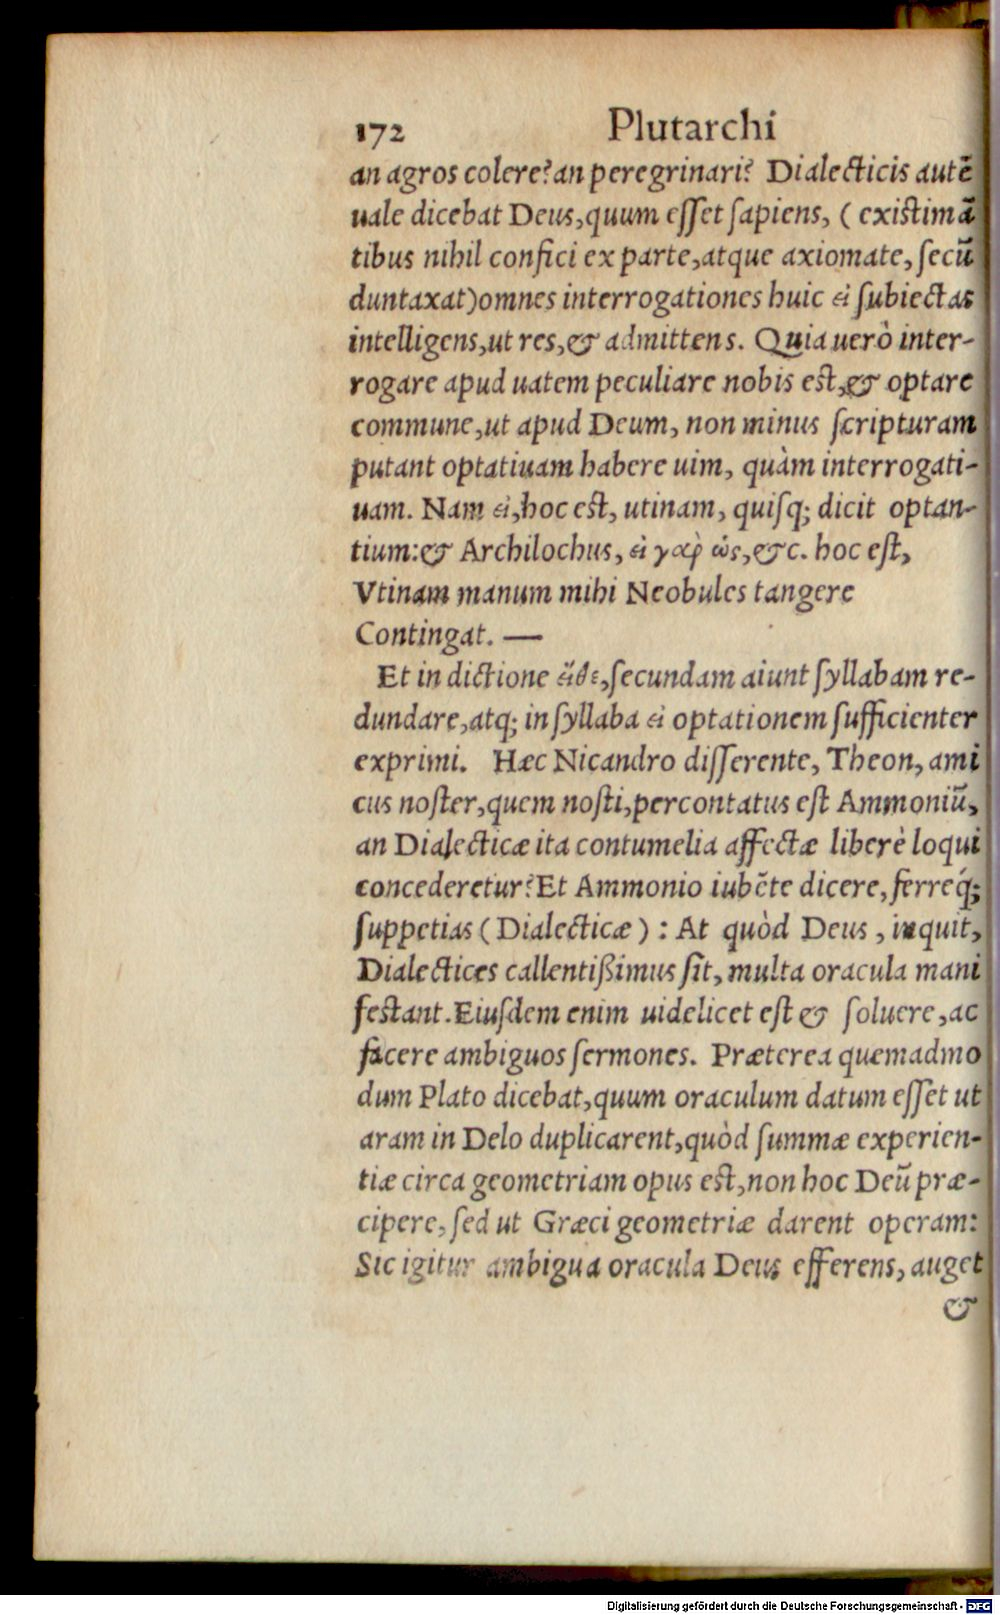 172 Plutarchi
an agros colere? an peregrinari? Dialecticis autē
uale dicebat Deus, quum esset sapiens, (existimā
tibus nihil confici ex parte, atque axiomate, secū
duntaxat) omnes interrogationes huic εἰ subiectas
intelligens, ut res, & admittens. Quia uerò inter-
rogare apud uatem peculiare nobis est, & optare
commune, ut apud Deum, non minus scripturam
putant optatiuam habere uim, quàm interrogati-
uam. Nam εἰ, hoc est, utinam, quisq; dicit optan-
tium: & Archilochus, εἰ γαρ̀ ὡς, &c. hoc est,
Vtinam manum mihi Neobules tangere
Contingat. —
Et in dictione εἴθε, secundam aiunt syllabam re-
dundare, atq; in syllaba εἰ optationem sufficienter
exprimi. Hæc Nicandro disserente, Theon, ami
cus noster, quem nosti, percontatus est Ammoniū,
an Dialecticæ ita contumelia affectæ liberè loqui
concederetur? Et Ammonio iubēte dicere, ferreq́;
suppetias (Dialecticæ): At quòd Deus, inquit,
Dialectices callentißimus sit, multa oracula mani
festant. Eiusdem enim uidelicet est & soluere, ac
facere ambiguos sermones. Præterea quemadmo
dum Plato dicebat, quum oraculum datum esset ut
aram in Delo duplicarent, quòd summæ experien-
tiæ circa geometriam opus est, non hoc Deū præ-
cipere, sed ut Græci geometriæ darent operam:
Sic igitur ambigua oracula Deus efferens, auget
&
Digitalisierung gefördert durch die Deutsche Forschungsgemeinschaft - DFG